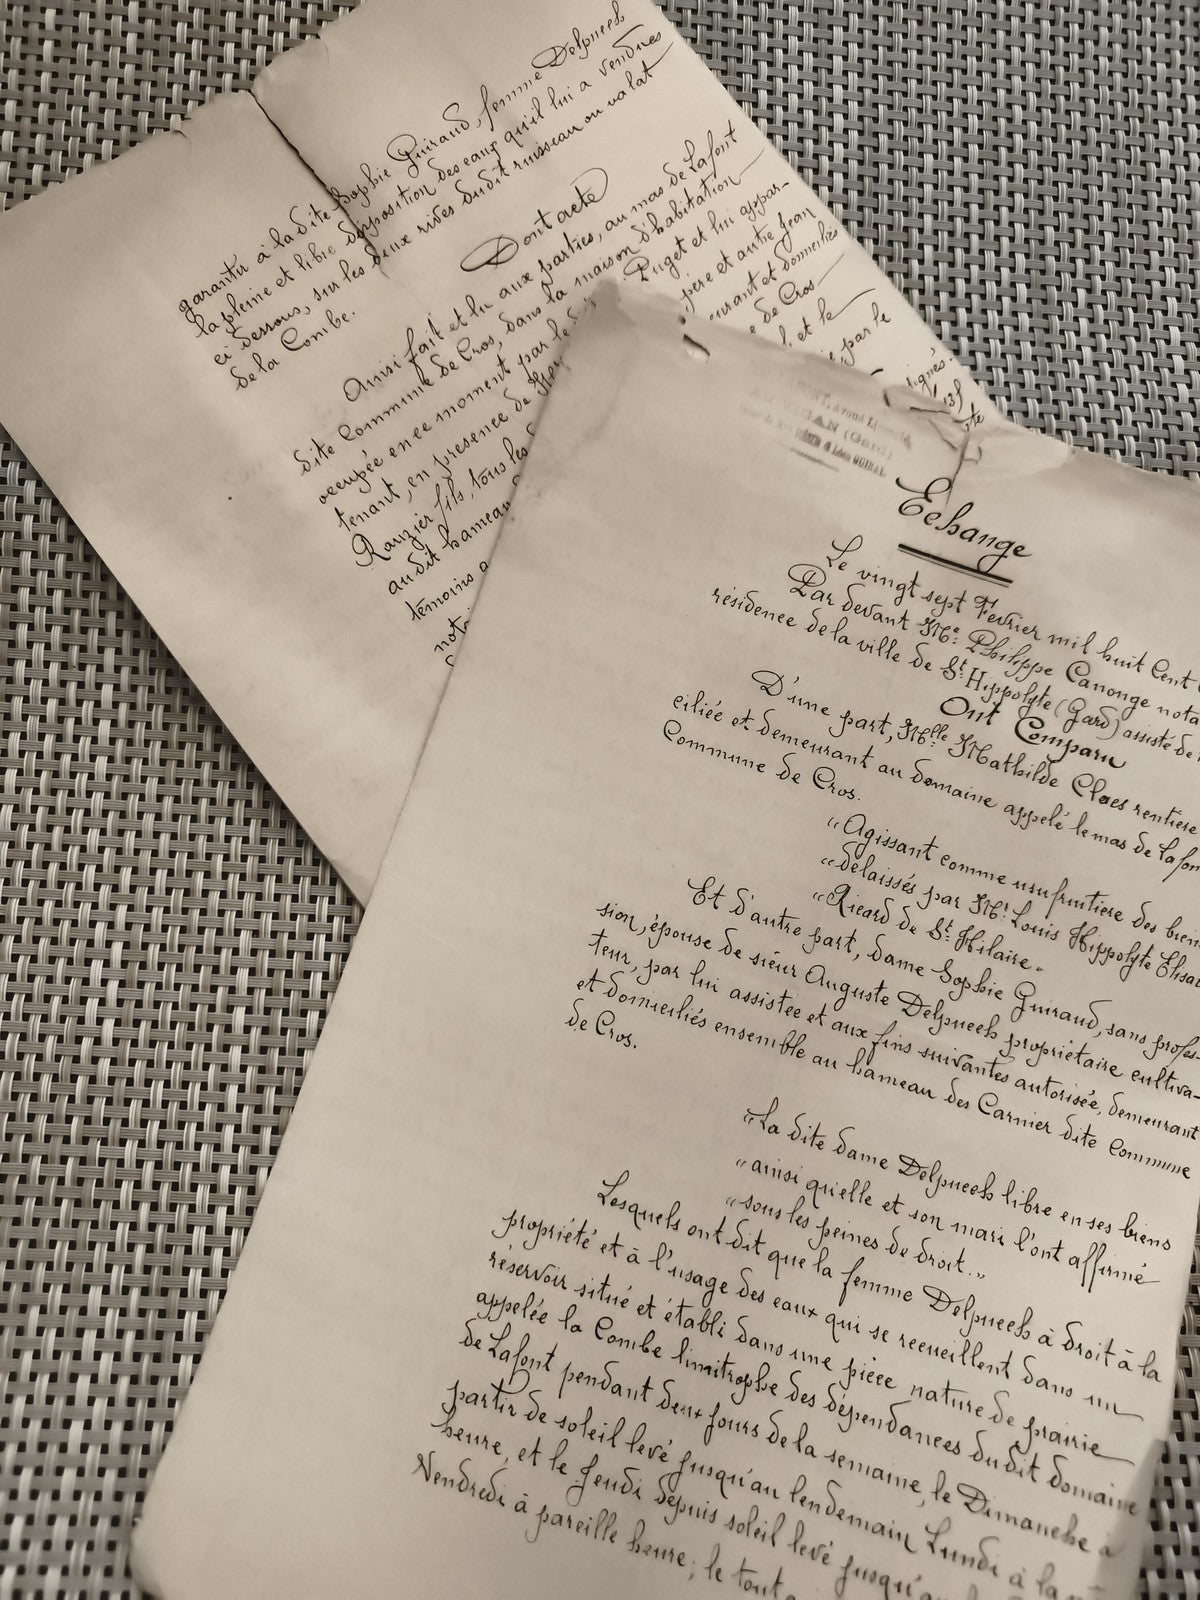 garantir à la dite Sophie Guiraud, femme Delpuech
la pleine et libre disposition des eaux qu'il lui a vendues
ci dessous, sur les deux rives dudit ruisseau ou valat
de la Combe.
Dont acte
Ainsi fait et lu aux parties, au mas de Lafont
dite Commune de Cros, dans la maison d'habitation
occupée en ce moment par le Puget et lui appar-
tenant, en presence de père et autre Jean
Rauzier fils, tous les demeurant et domiciliés
au dit hameau de Cros
témoins et le
par le
signés.
AU VIGAN (Gard)
Echange
Le vingt sept Fevrier mil huit cent
Par devant Me. Philippe Canonge nota
residence de la ville de St. Hippolyte (Gard) assisté de
Ont Comparu
D'une part, Melle Mathilde Claes rentiere
ciliée et demeurant au domaine appelé le mas de Lafon
Commune de Cros.
"Agissant comme usufruitiere des bien
"délaissés par Mr. Louis Hippolyte
"Ricard de St. Hilaire."
Et d'autre part, dame Sophie Guiraud, sans profes-
sion, épouse de sieur Auguste Delpuech propriétaire cultiva-
teur, par lui assistée et aux fins suivantes autorisée, demeurant
et domiciliés ensemble au hameau des Carnier dite Commune
de Cros.
"La dite dame Delpuech libre en ses biens
"ainsi qu'elle et son mari l'ont affirmé
"sous les peines de droit.."
Lesquels ont dit que la femme Delpuech à droit à la
propriété et à l'usage des eaux qui se recueillent dans un
réservoir situé et établi dans une pièce nature de prairie
appelée la Combe limitrophe des dépendances du dit domaine
de Lafont pendant deux jours de la semaine, le Dimanche à
partir de soleil levé jusqu'au lendemain Lundi à la
heure, et le Jeudi depuis soleil levé jusqu'au
Vendredi à pareille heure; le tout